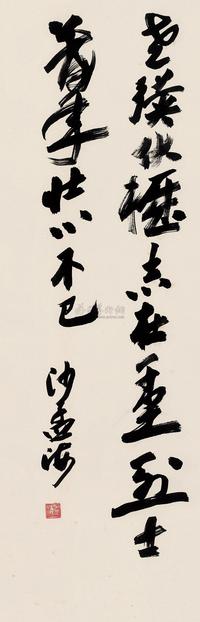 老驥伏櫪志在千里烈士
暮年壮心不已
沙孟海